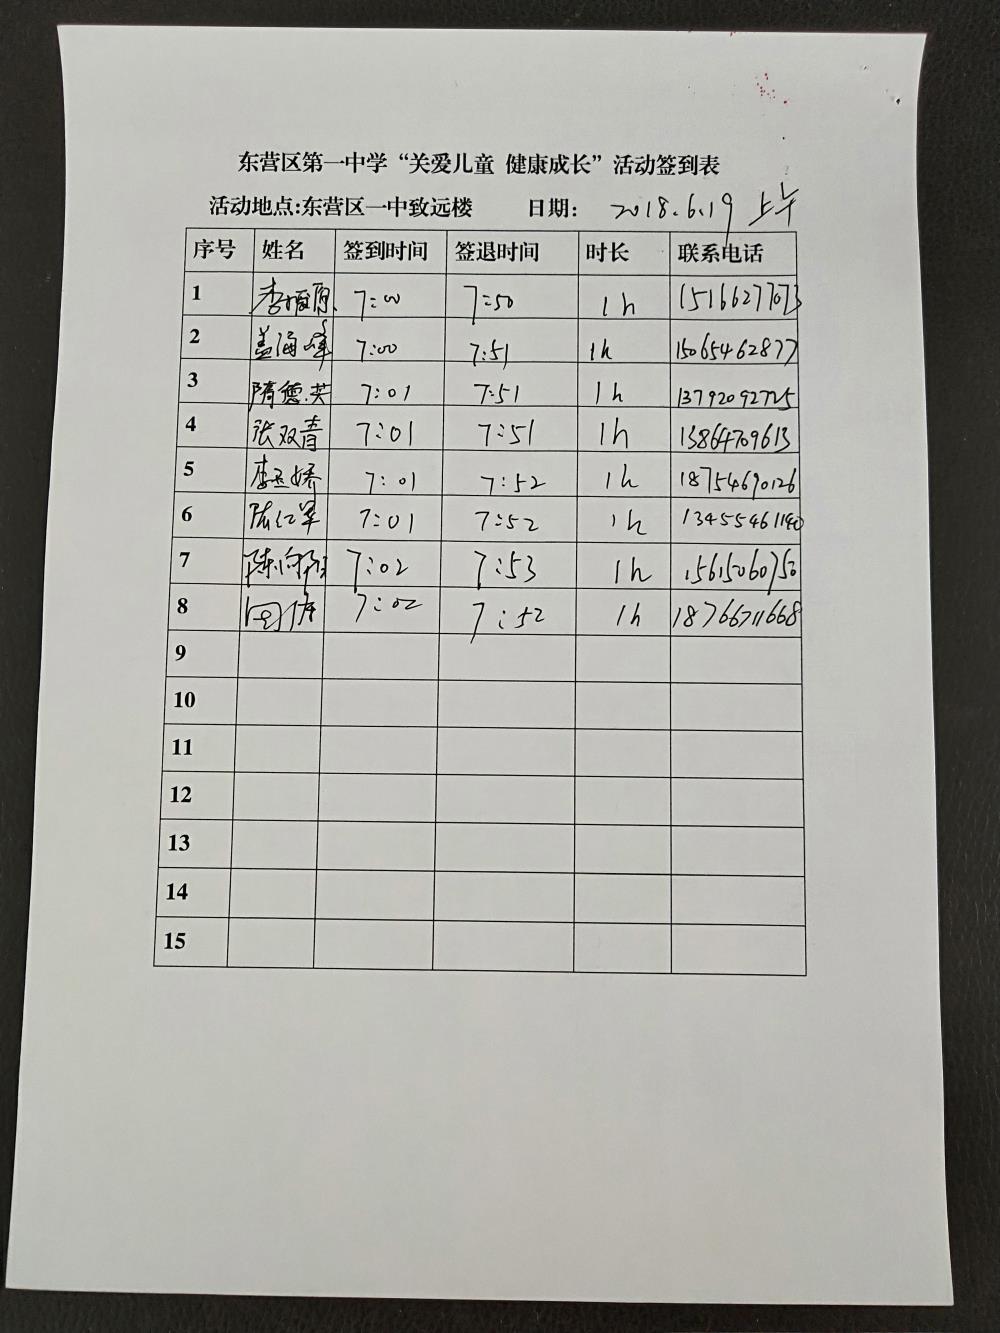 东营区第一中学“关爱儿童 健康成长”活动签到表
活动地点:东营区一中致远楼 日期: 2018.6.19 上午
序号 姓名 签到时间 签退时间 时长 联系电话
1 7:00 7:50 1h 15166277073
2 盖海峰 7:00 7:51 1h 15065462877
3 隋德英 7:01 7:51 1h 13792092725
4 张双青 7:01 7:51 1h 13864709613
5 李玉娇 7:01 7:52 1h 18754690126
6 陈仁军 7:01 7:52 1h 13455461140
7 陈向阳 7:02 7:53 1h 15615060750
8 7:02 7:52 1h 18766711668
9
10
11
12
13
14
15